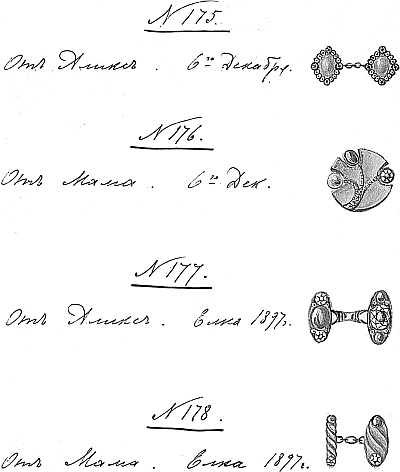 N 175.
Отъ Аликсъ. 6го Декабря.
N 176.
Отъ Мама. 6го Дек.
N 177.
Отъ Аликсъ. Елка 1897г.
N 178.
Отъ Мама. Елка 1897г.